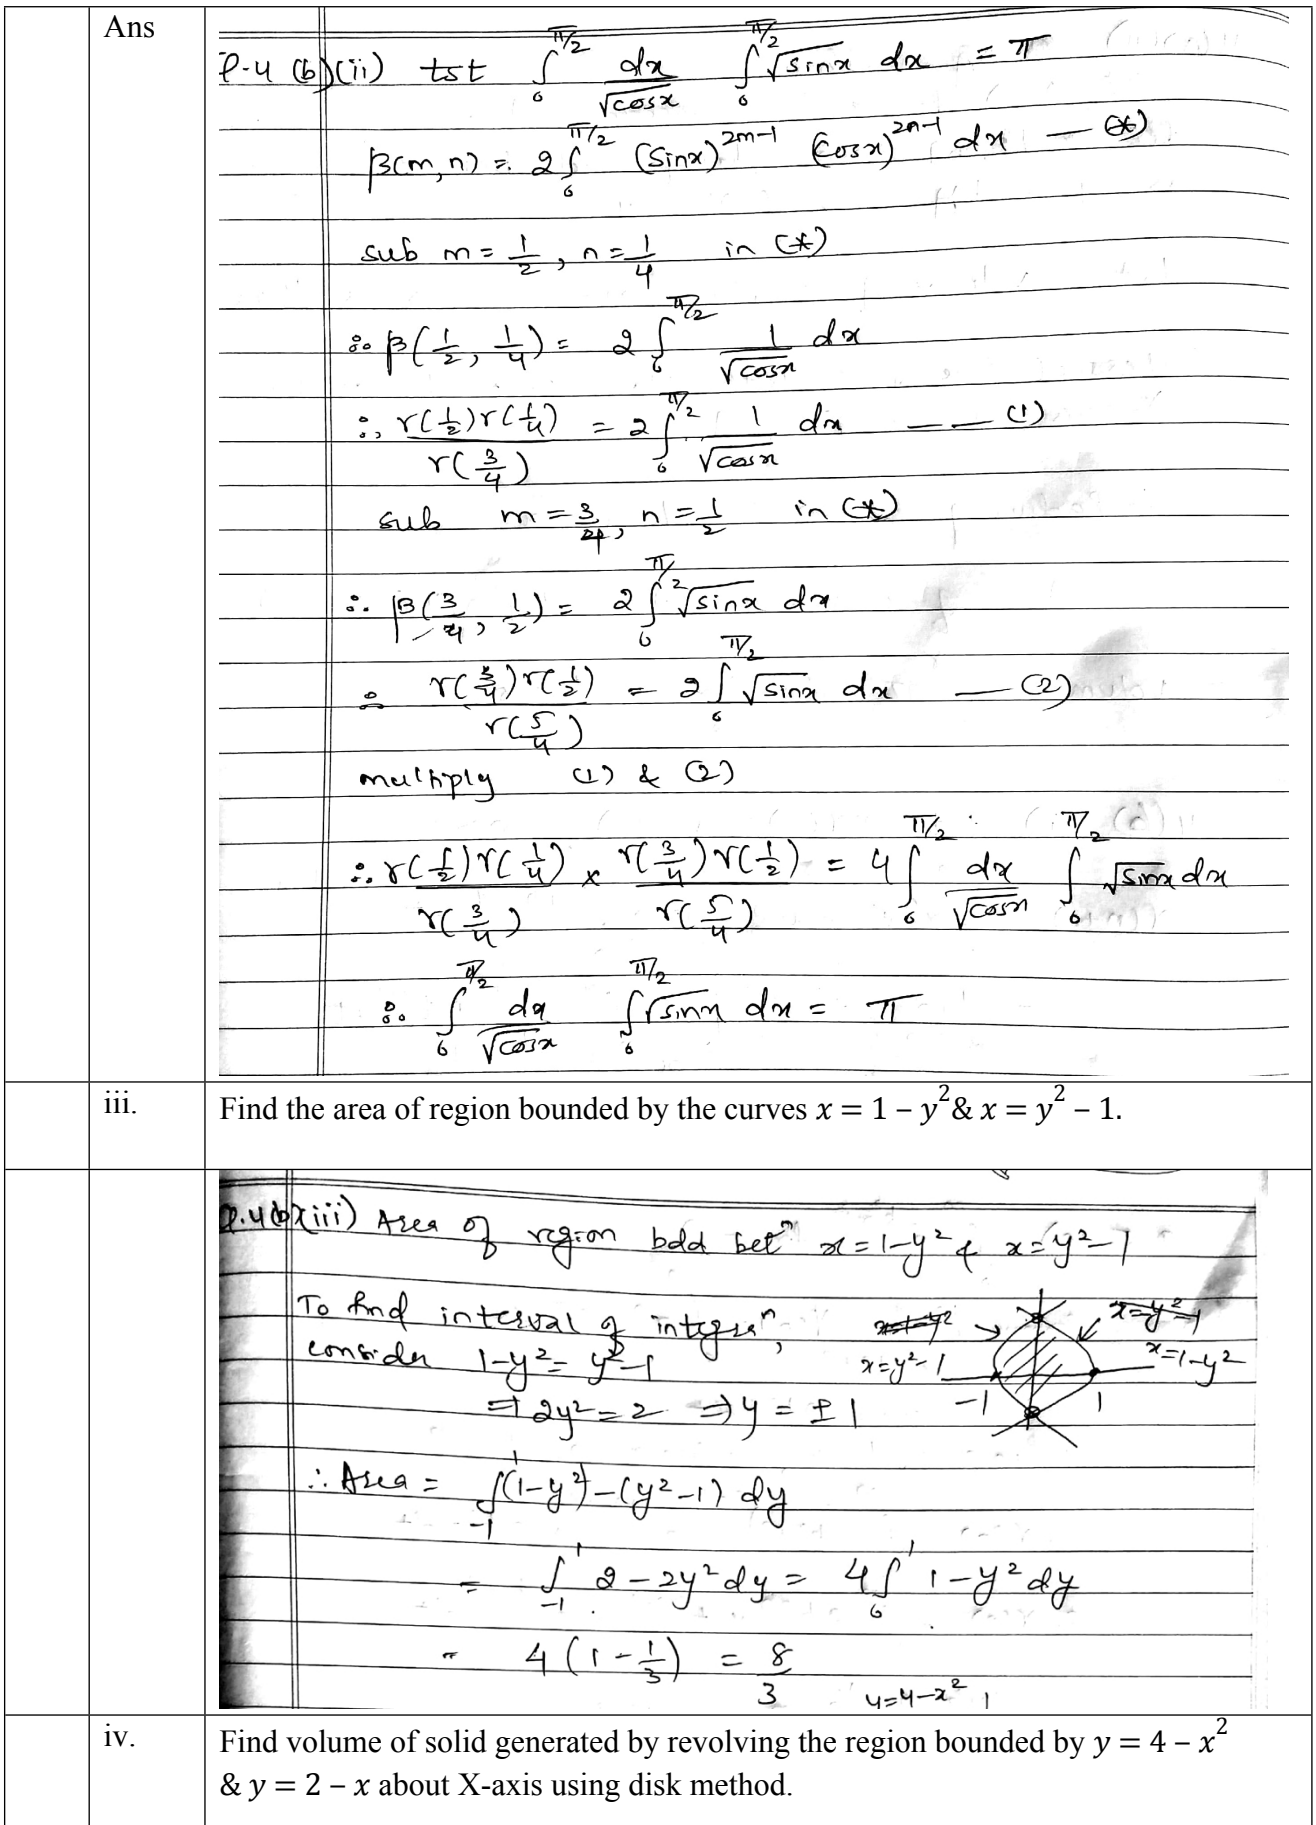 Ans
P-4 (b)(ii) tst ∫₀^{π/2} dx/√cosx ∫₀^{π/2} √sinx dx = π
β(m, n) = 2∫₀^{π/2} (sinx)^{2m-1} (cosx)^{2n-1} dx — (*)
sub m = 1/2, n = 1/4 in (*)
∴ β(1/2, 1/4) = 2∫₀^{π/2} 1/√cosx dx
∴, γ(1/2)γ(1/4)/γ(3/4) = 2∫₀^{π/2} 1/√cosx dx — — (1)
sub m = 3/4, n = 1/2 in (*)
∴ β(3/4, 1/2) = 2∫₀^{π/2} √sinx dx
∴ γ(3/4)γ(1/2)/γ(5/4) = 2∫₀^{π/2} √sinx dx — (2)
multiply (1) & (2)
∴ γ(1/2)γ(1/4)/γ(3/4) × γ(3/4)γ(1/2)/γ(5/4) = 4∫₀^{π/2} dx/√cosx ∫₀^{π/2} √sinx dx
∴ ∫₀^{π/2} dx/√cosx ∫₀^{π/2} √sinx dx = π
iii. Find the area of region bounded by the curves x = 1 – y²& x = y² – 1.
P.4(b)(iii) Area of region bdd betⁿ x = 1-y² & x = y²-1
To find interval of integraⁿ,
consider 1-y² = y²-1
x=y²-1 x=y²-1
x=1-y²
-1 1
⇒ 2y² = 2 ⇒ y = ±1
∴ Area = ∫₋₁¹ (1-y²)-(y²-1) dy
= ∫₋₁¹ 2-2y² dy = 4∫₀¹ 1-y² dy
= 4(1-1/3) = 8/3
y=4-x²
iv. Find volume of solid generated by revolving the region bounded by y = 4 – x²
& y = 2 – x about X-axis using disk method.